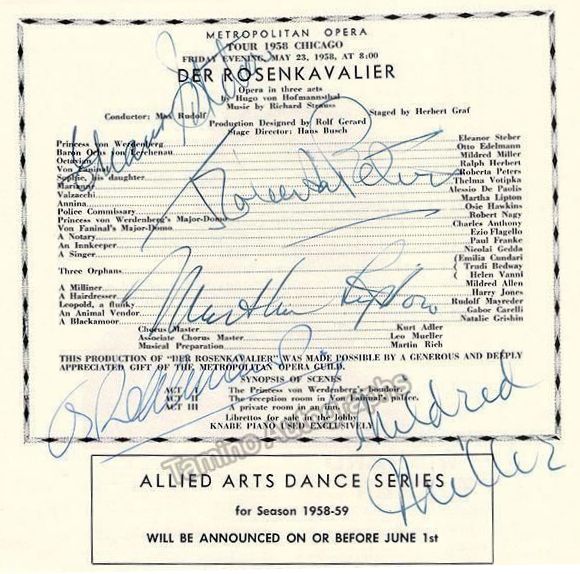 METROPOLITAN OPERA
TOUR 1958 CHICAGO
FRIDAY EVENING, MAY 23, 1958, AT 8:00
DER ROSENKAVALIER
Opera in three acts
by Hugo von Hofmannsthal
Music by Richard Strauss
Conductor: Max Rudolf Staged by Herbert Graf
Production Designed by Rolf Gerard
Stage Director: Hans Busch
Princess von Werdenberg Eleanor Steber
Baron Ochs von Lerchenau Otto Edelmann
Octavian Mildred Miller
Von Faninal Ralph Herbert
Sophie, his daughter Roberta Peters
Marianne Thelma Votipka
Valzacchi Alessio De Paolis
Annina Martha Lipton
Police Commissary Osie Hawkins
Princess von Werdenberg's Major-Domo Robert Nagy
Von Faninal's Major-Domo Charles Anthony
A Notary Ezio Flagello
An Innkeeper Paul Franke
A Singer Nicolai Gedda
Three Orphans (Emilia Cundari
( Trudi Bedway
( Helen Vanni
A Milliner Mildred Allen
A Hairdresser Harry Jones
Leopold, a flunky Rudolf Mayreder
An Animal Vendor Gabor Carelli
A Blackamoor Natalie Grishin
Chorus Master Kurt Adler
Associate Chorus Master Leo Mueller
Musical Preparation Martin Rich
THIS PRODUCTION OF "DER ROSENKAVALIER" WAS MADE POSSIBLE BY A GENEROUS AND DEEPLY
APPRECIATED GIFT OF THE METROPOLITAN OPERA GUILD.
SYNOPSIS OF SCENES
ACT I The Princess von Werdenberg's boudoir.
ACT II The reception room in Von Faninal's palace.
ACT III A private room in an inn.
Librettos for sale in the lobby
KNABE PIANO USED EXCLUSIVELY
Eleanor Steber
Roberta Peters
Martha Lipton
Mildred
Miller
Tamino Autographs
ALLIED ARTS DANCE SERIES
for Season 1958-59
WILL BE ANNOUNCED ON OR BEFORE JUNE 1st